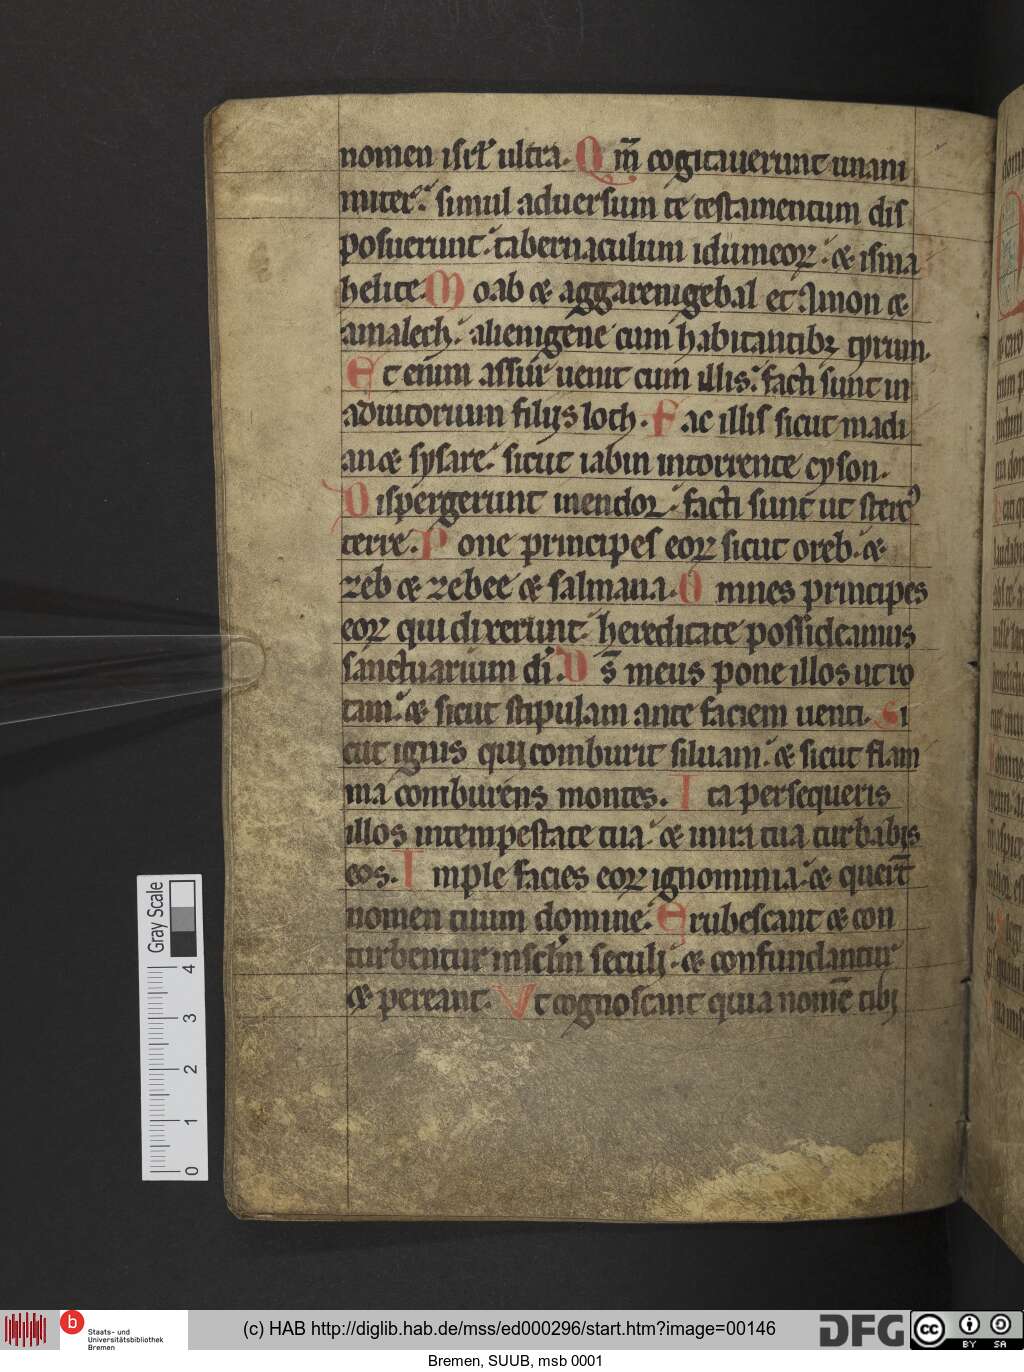 nomen isrł ultra. Qm̄ cogitauerunt unani
miter: simul aduersum te testamentum dis
posuerunt: tabernaculum idumeoꝝ: & isma
helite. Moab & aggareni gebal et Amon &
amalech: alienigene cum habitantibꝫ tyrum.
Et enim assur uenit cum illis: facti sunt in
adiutorium filijs loth. Fac illis sicut madi
an & sysare: sicut iabin in torrente cyson.
Dispergerunt in endoꝝ: facti sunt ut sterc᷒
terre. Pone principes eoꝝ sicut oreb. &
zeb & zebee & salmana. Omnes principes
eoꝝ qui dixerunt: hereditate possideamus
sanctuarium di. Ds̄ meus pone illos ut ro
tam: & sicut stipulam ante faciem uenti. Si
cut ignis qui comburit siluam: & sicut flam
ma comburens montes. Ita persequeris
illos in tempestate tua: & in ira tua turbabis
eos. Imple facies eoꝝ ignominia: & quert̄
nomen tuum domine. Erubescant & con
turbentur in sclm̄ seculi: & confundantur
& pereant. Vt cognoscant quia nomē tibi
Gray Scale
4
3
2
1
0
b Staats- und
Universitätsbibliothek
Bremen
(c) HAB http://diglib.hab.de/mss/ed000296/start.htm?image=00146
DFG
cc BY SA
Bremen, SUUB, msb 0001